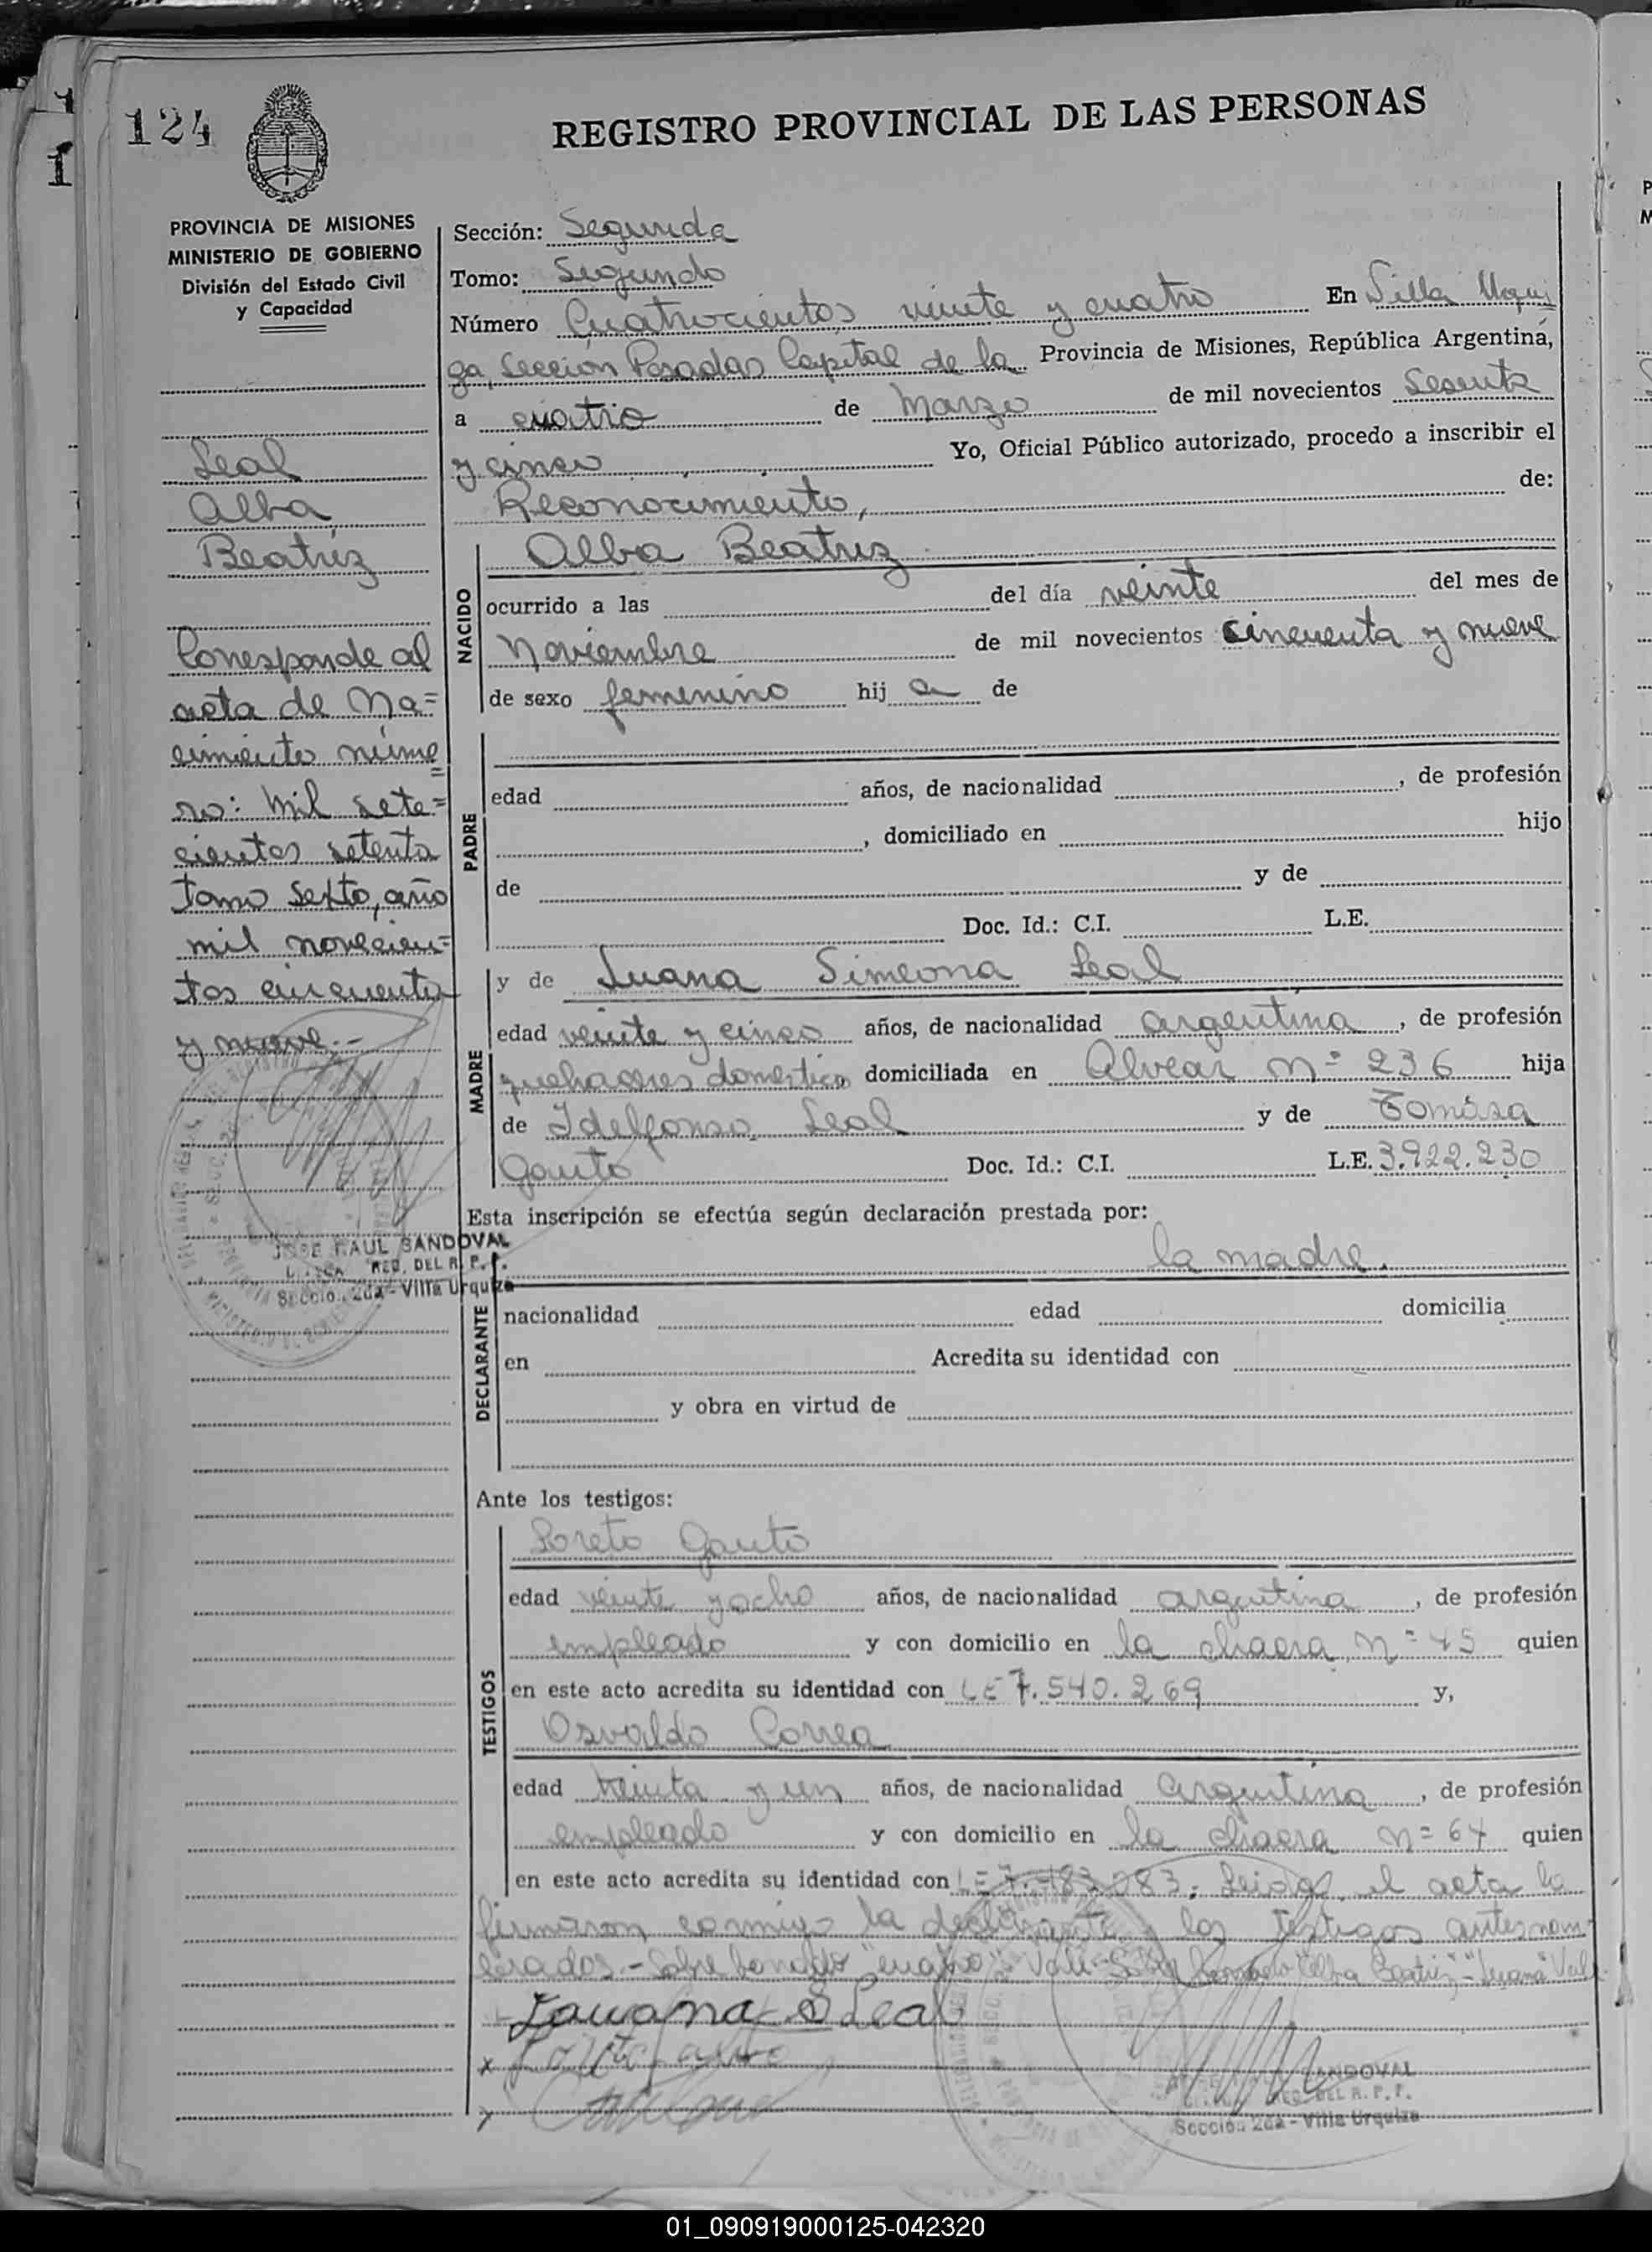 124
1
1
REGISTRO PROVINCIAL DE LAS PERSONAS
PROVINCIA DE MISIONES
MINISTERIO DE GOBIERNO
División del Estado Civil
y Capacidad
Leal
Alba
Beatriz
Corresponde al
acta de Na=
cimiento núme
ro: Mil sete=
cientos setenta
Tomo Sexto, año
mil novecien=
tos cincuenta
y nueve.-
JOSE RAUL SANDOVAL
REG. DEL R. P. P.
Sección 2da - Villa Urquiza
Sección: Segunda
Tomo: Segundo
Número Cuatrocientos veinte y cuatro En Villa Urqui
za, Sección Posadas Capital de la Provincia de Misiones, República Argentina,
a cuatro de Marzo de mil novecientos Sesenta
y cinco Yo, Oficial Público autorizado, procedo a inscribir el
Reconocimiento, de:
NACIDO
Alba Beatriz
ocurrido a las del día veinte del mes de
Noviembre de mil novecientos cincuenta y nueve
de sexo femenino hij a de
PADRE
edad años, de nacionalidad , de profesión
, domiciliado en hijo
de y de
Doc. Id.: C.I. L.E.
MADRE
y de Juana Simeona Leal
edad veinte y cinco años, de nacionalidad argentina , de profesión
quehaceres domestico domiciliada en Alvear nº 236 hija
de Idelfonso Leal y de Tomasa
Gauto Doc. Id.: C.I. L.E. 3.922.230
Esta inscripción se efectúa según declaración prestada por:
la madre.
DECLARANTE
nacionalidad edad domicilia
en Acredita su identidad con
y obra en virtud de
Ante los testigos:
TESTIGOS
Loreto Gauto
edad veinte y ocho años, de nacionalidad argentina , de profesión
empleado y con domicilio en la chacra nº 45 quien
en este acto acredita su identidad con LE 7.540.269 y,
Osvaldo Correa
edad treinta y un años, de nacionalidad Argentina , de profesión
empleado y con domicilio en la chacra nº 64 quien
en este acto acredita su identidad con LE 083. Leida el acta la
firmaron conmigo la declarante y los testigos antes nom
brados.- Sobre borrado "cuatro" Vale- Sobre borrado "Alba Beatriz"- "Juana" Vale
Jauana S Leal
x
SANDOVAL
REG. DEL R. P. P.
Sección 2da - Villa Urquiza
01_090919000125-042320